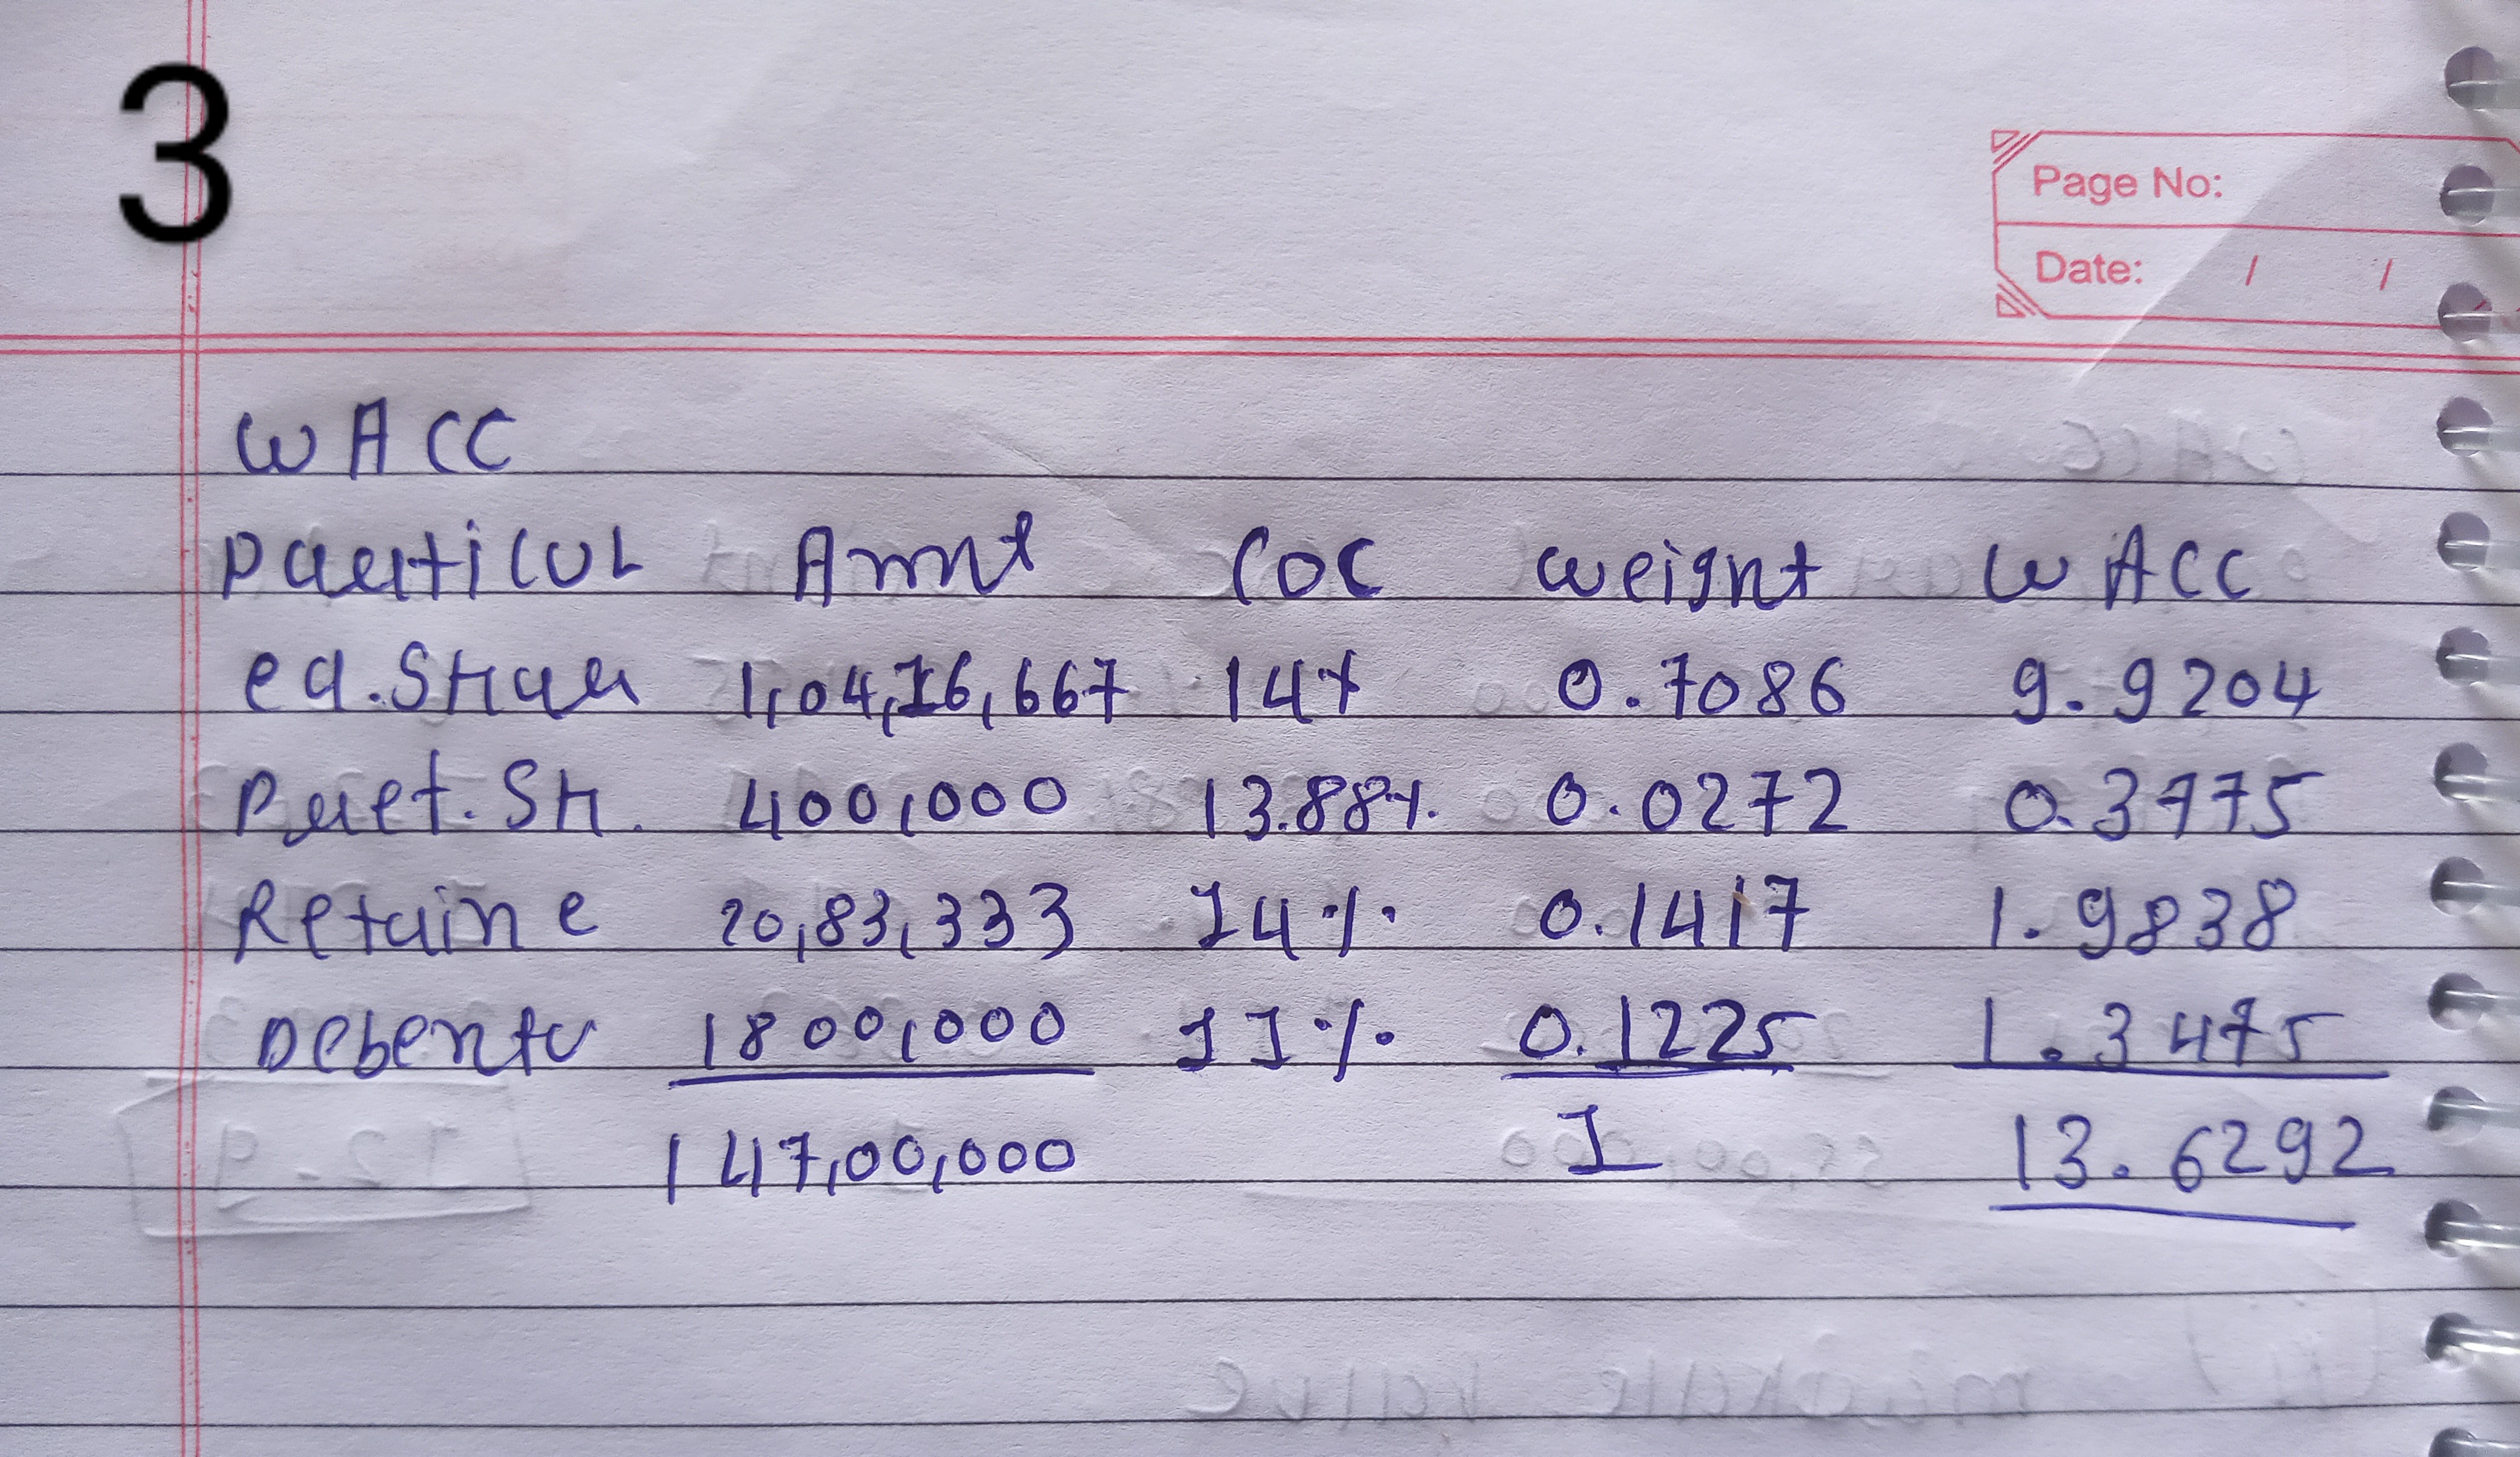 3
Page No:
Date: / /
WACC
Particul Amnt COC weignt WACC
eq.Shau 1,04,16,667 14% 0.7086 9.9204
Pref.Sh. 400,000 13.88%. 0.0272 0.3775
Retaine 20,83,333 14% 0.1417 1.9838
Debentu 1800,000 11% 0.1225 1.3475
147,00,000 1 13.6292